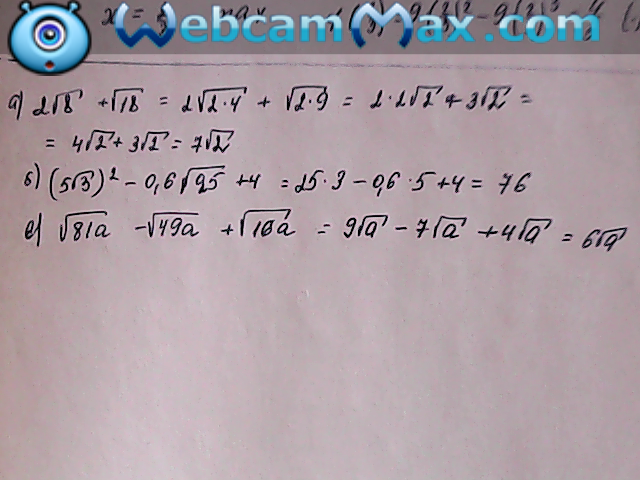 WebcamMax.com
а) 2√8 + √18 = 2√2·4 + √2·9 = 2·2√2 + 3√2 =
= 4√2 + 3√2 = 7√2
б) (5√3)² - 0,6√25 + 4 = 25·3 - 0,6·5 + 4 = 76
в) √81a - √49a + √16a = 9√a - 7√a + 4√a = 6√a